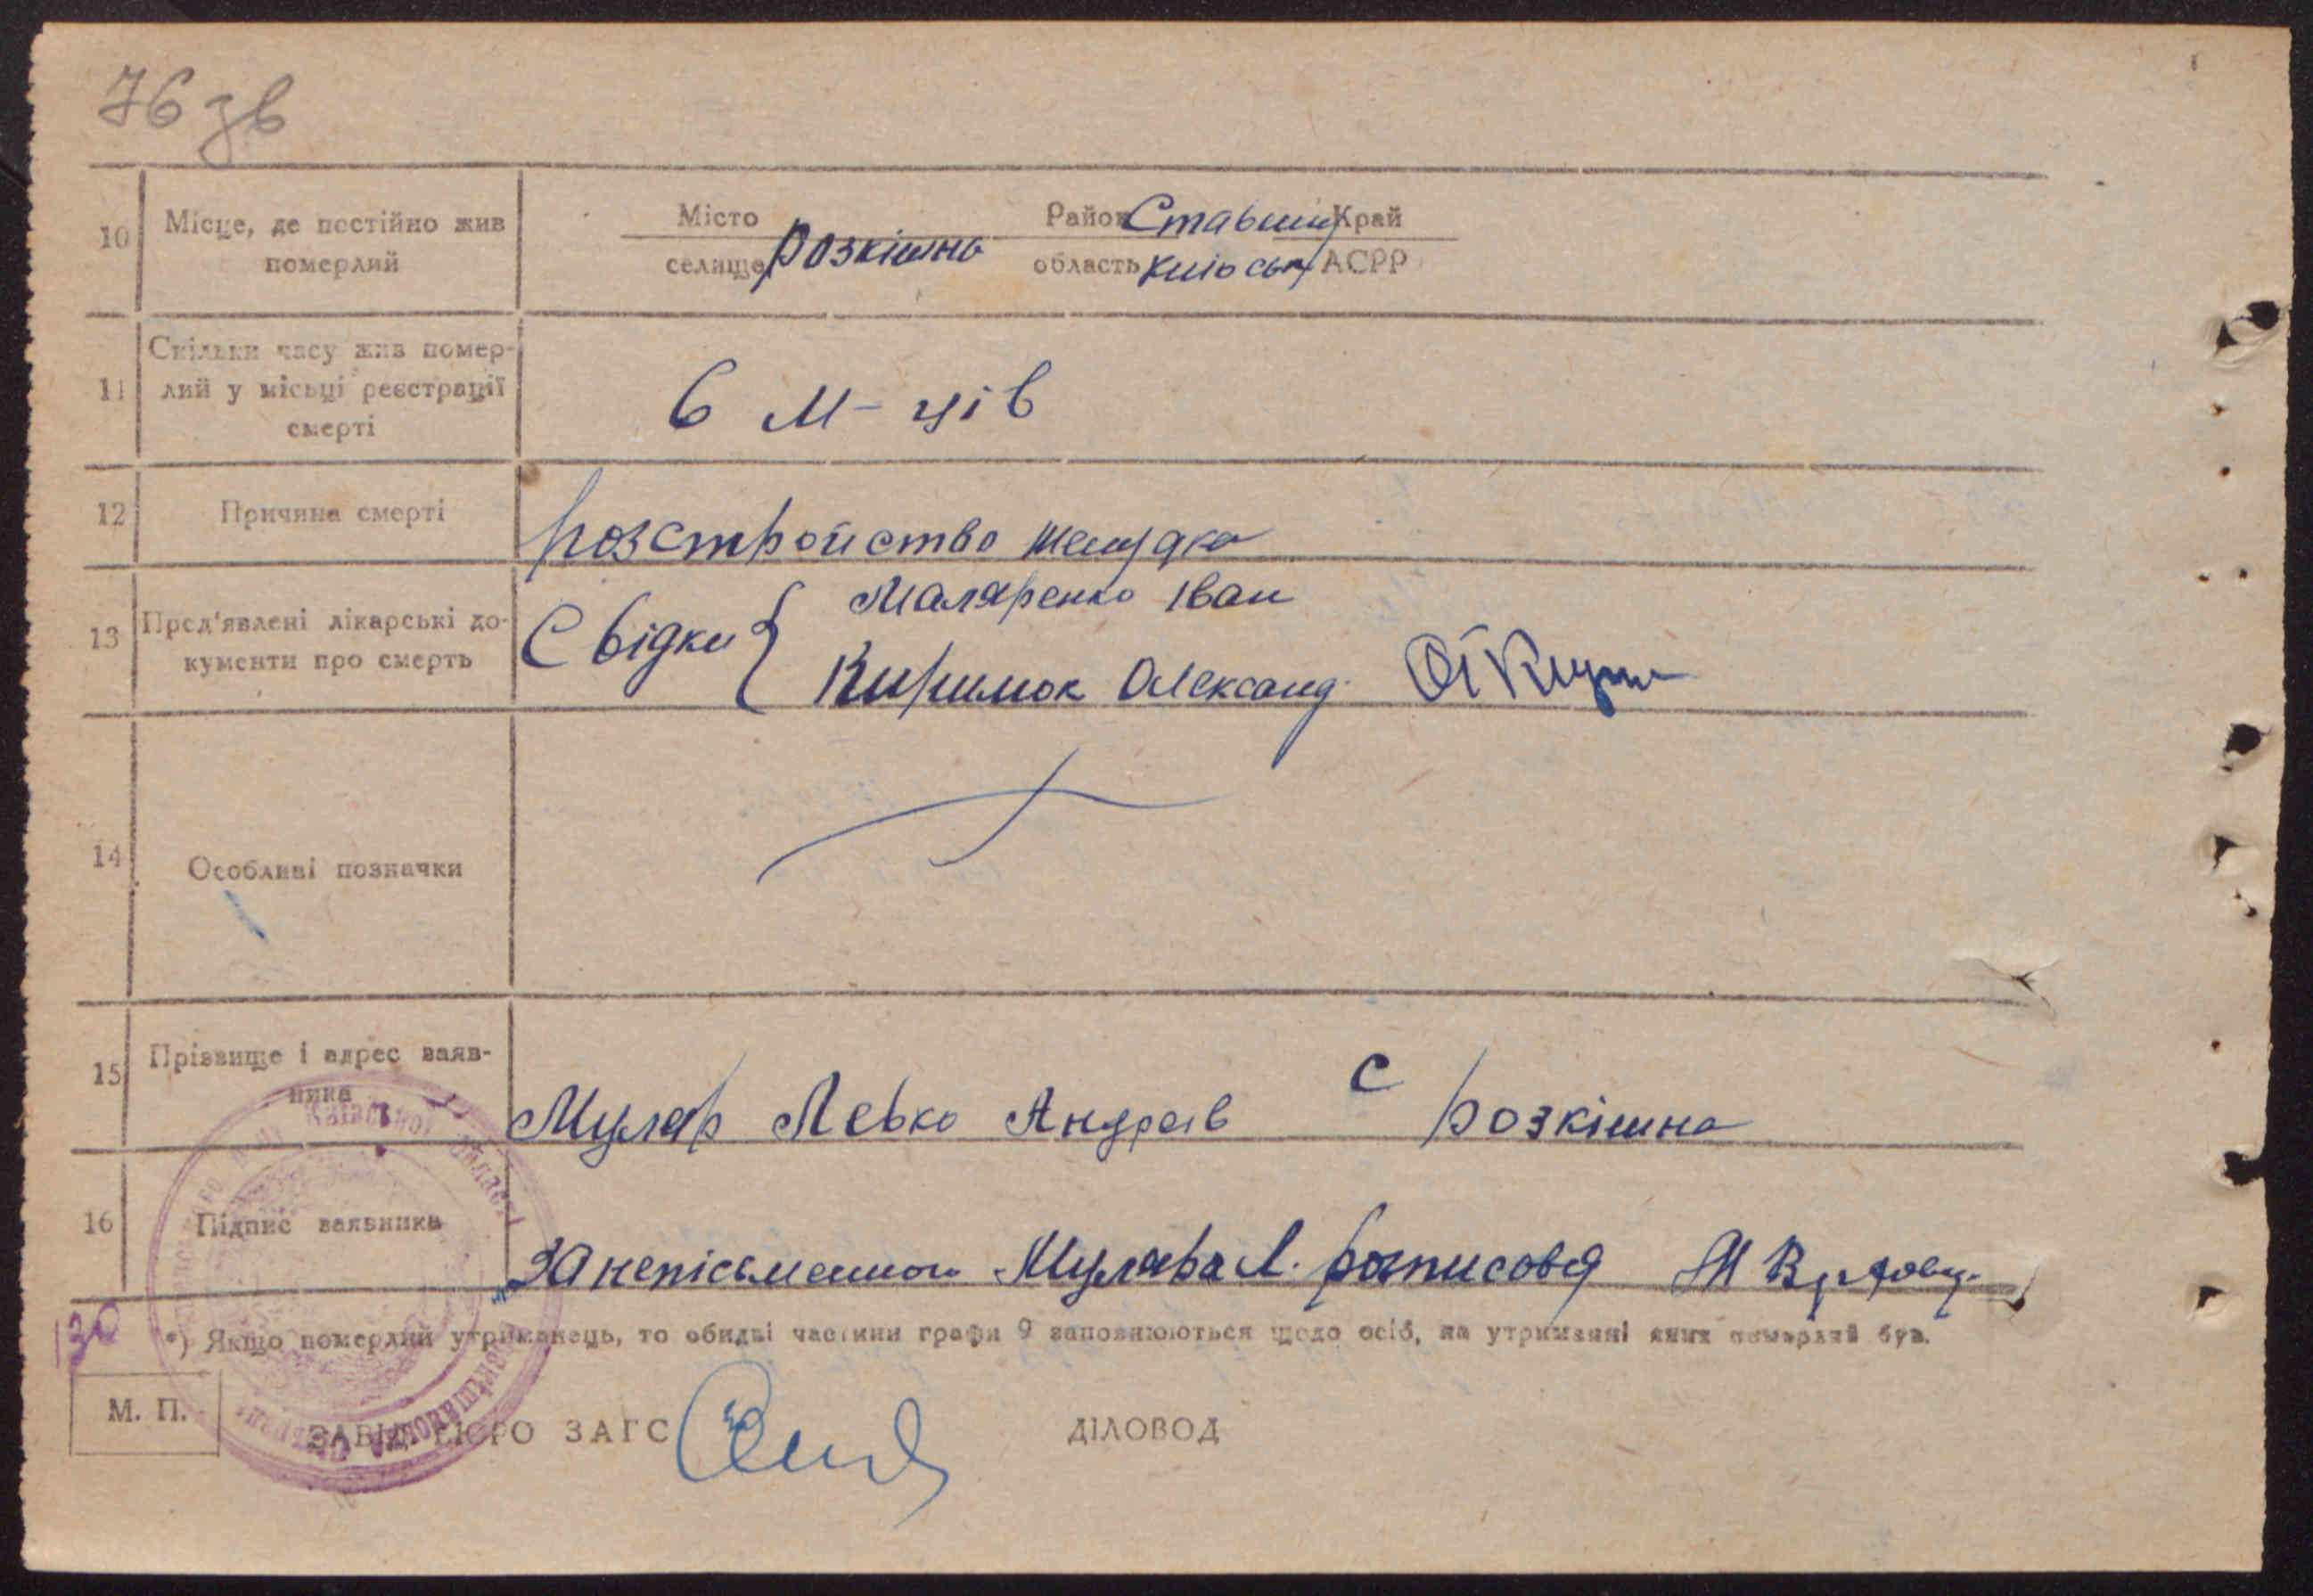 76 зв
10 Місце, де постійно жив померлий
Місто Район Ставищ Край
селище Розкішна область Київськ АСРР
11 Скільки часу жив помер-
лий у місьці реєстрації
смерті
6 м-ців
12 Причина смерті
розстройство желудка
13 Пред'явлені лікарські до-
кументи про смерть
Свідки { Маляренко Іван
Киримок Олександ.
14 Особливі позначки
15 Прізвище і адрес заяв-
ника
Муляр Левко Андреів с Розкішна
16 Підпис заявника
За непісьменного Муляра Л. росписовд
130
*) Якщо померлий утриманець, то обидві частини графи 9 заповнюються щодо осіб, на утриманні яких померлий був.
М. П.
ЗАВІД. БЮРО ЗАГС ДІЛОВОД